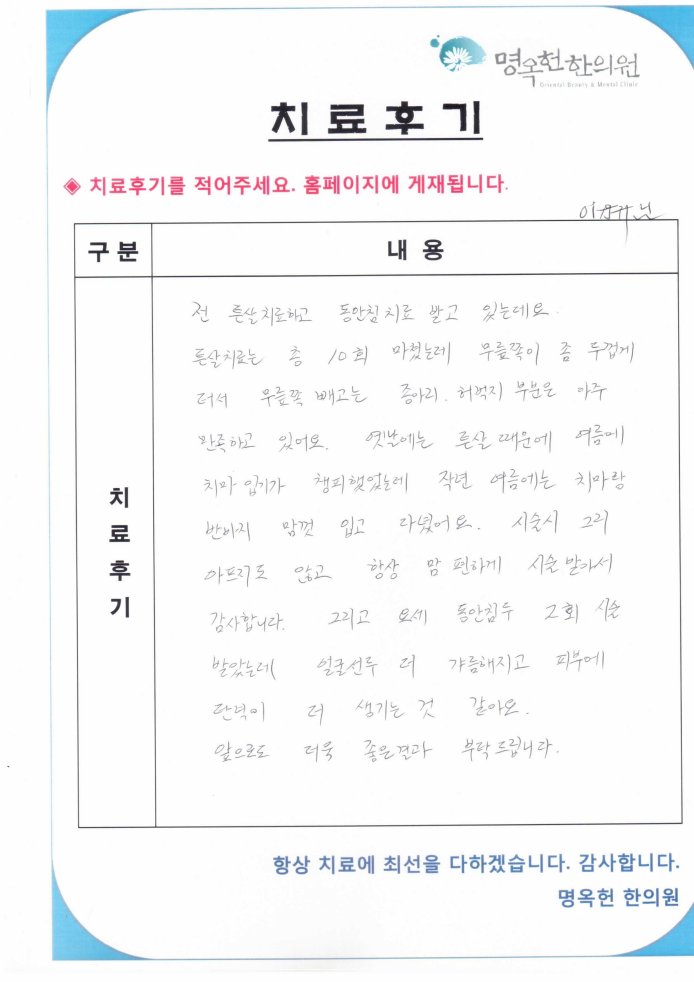 명옥헌한의원
Oriental Beauty & Mental Clinic
치료후기
◈ 치료후기를 적어주세요. 홈페이지에 게재됩니다.
님
구분
내용
치료후기
전 튼살치료하고 동안침치료 받고 있는데요.
튼살치료는 총 10회 마쳤는데 무릎쪽이 좀 두껍게
더서 무릎쪽 빼고는 종아리. 허벅지 부분은 아주
만족하고 있어요. 옛날에는 튼살 때문에 여름에
치마 입기가 챙피했었는데 작년 여름에는 치마랑
반바지 맘껏 입고 다녔어요. 시술시 그리
아프지도 않고 항상 맘 편하게 시술 받아서
감사합니다. 그리고 요세 동안침두 2회 시술
받았는데 얼굴선두 더 갸름해지고 피부에
탄력이 더 생기는 것 같아요.
앞으로도 더욱 좋은결과 부탁드립니다.
항상 치료에 최선을 다하겠습니다. 감사합니다.
명옥헌 한의원